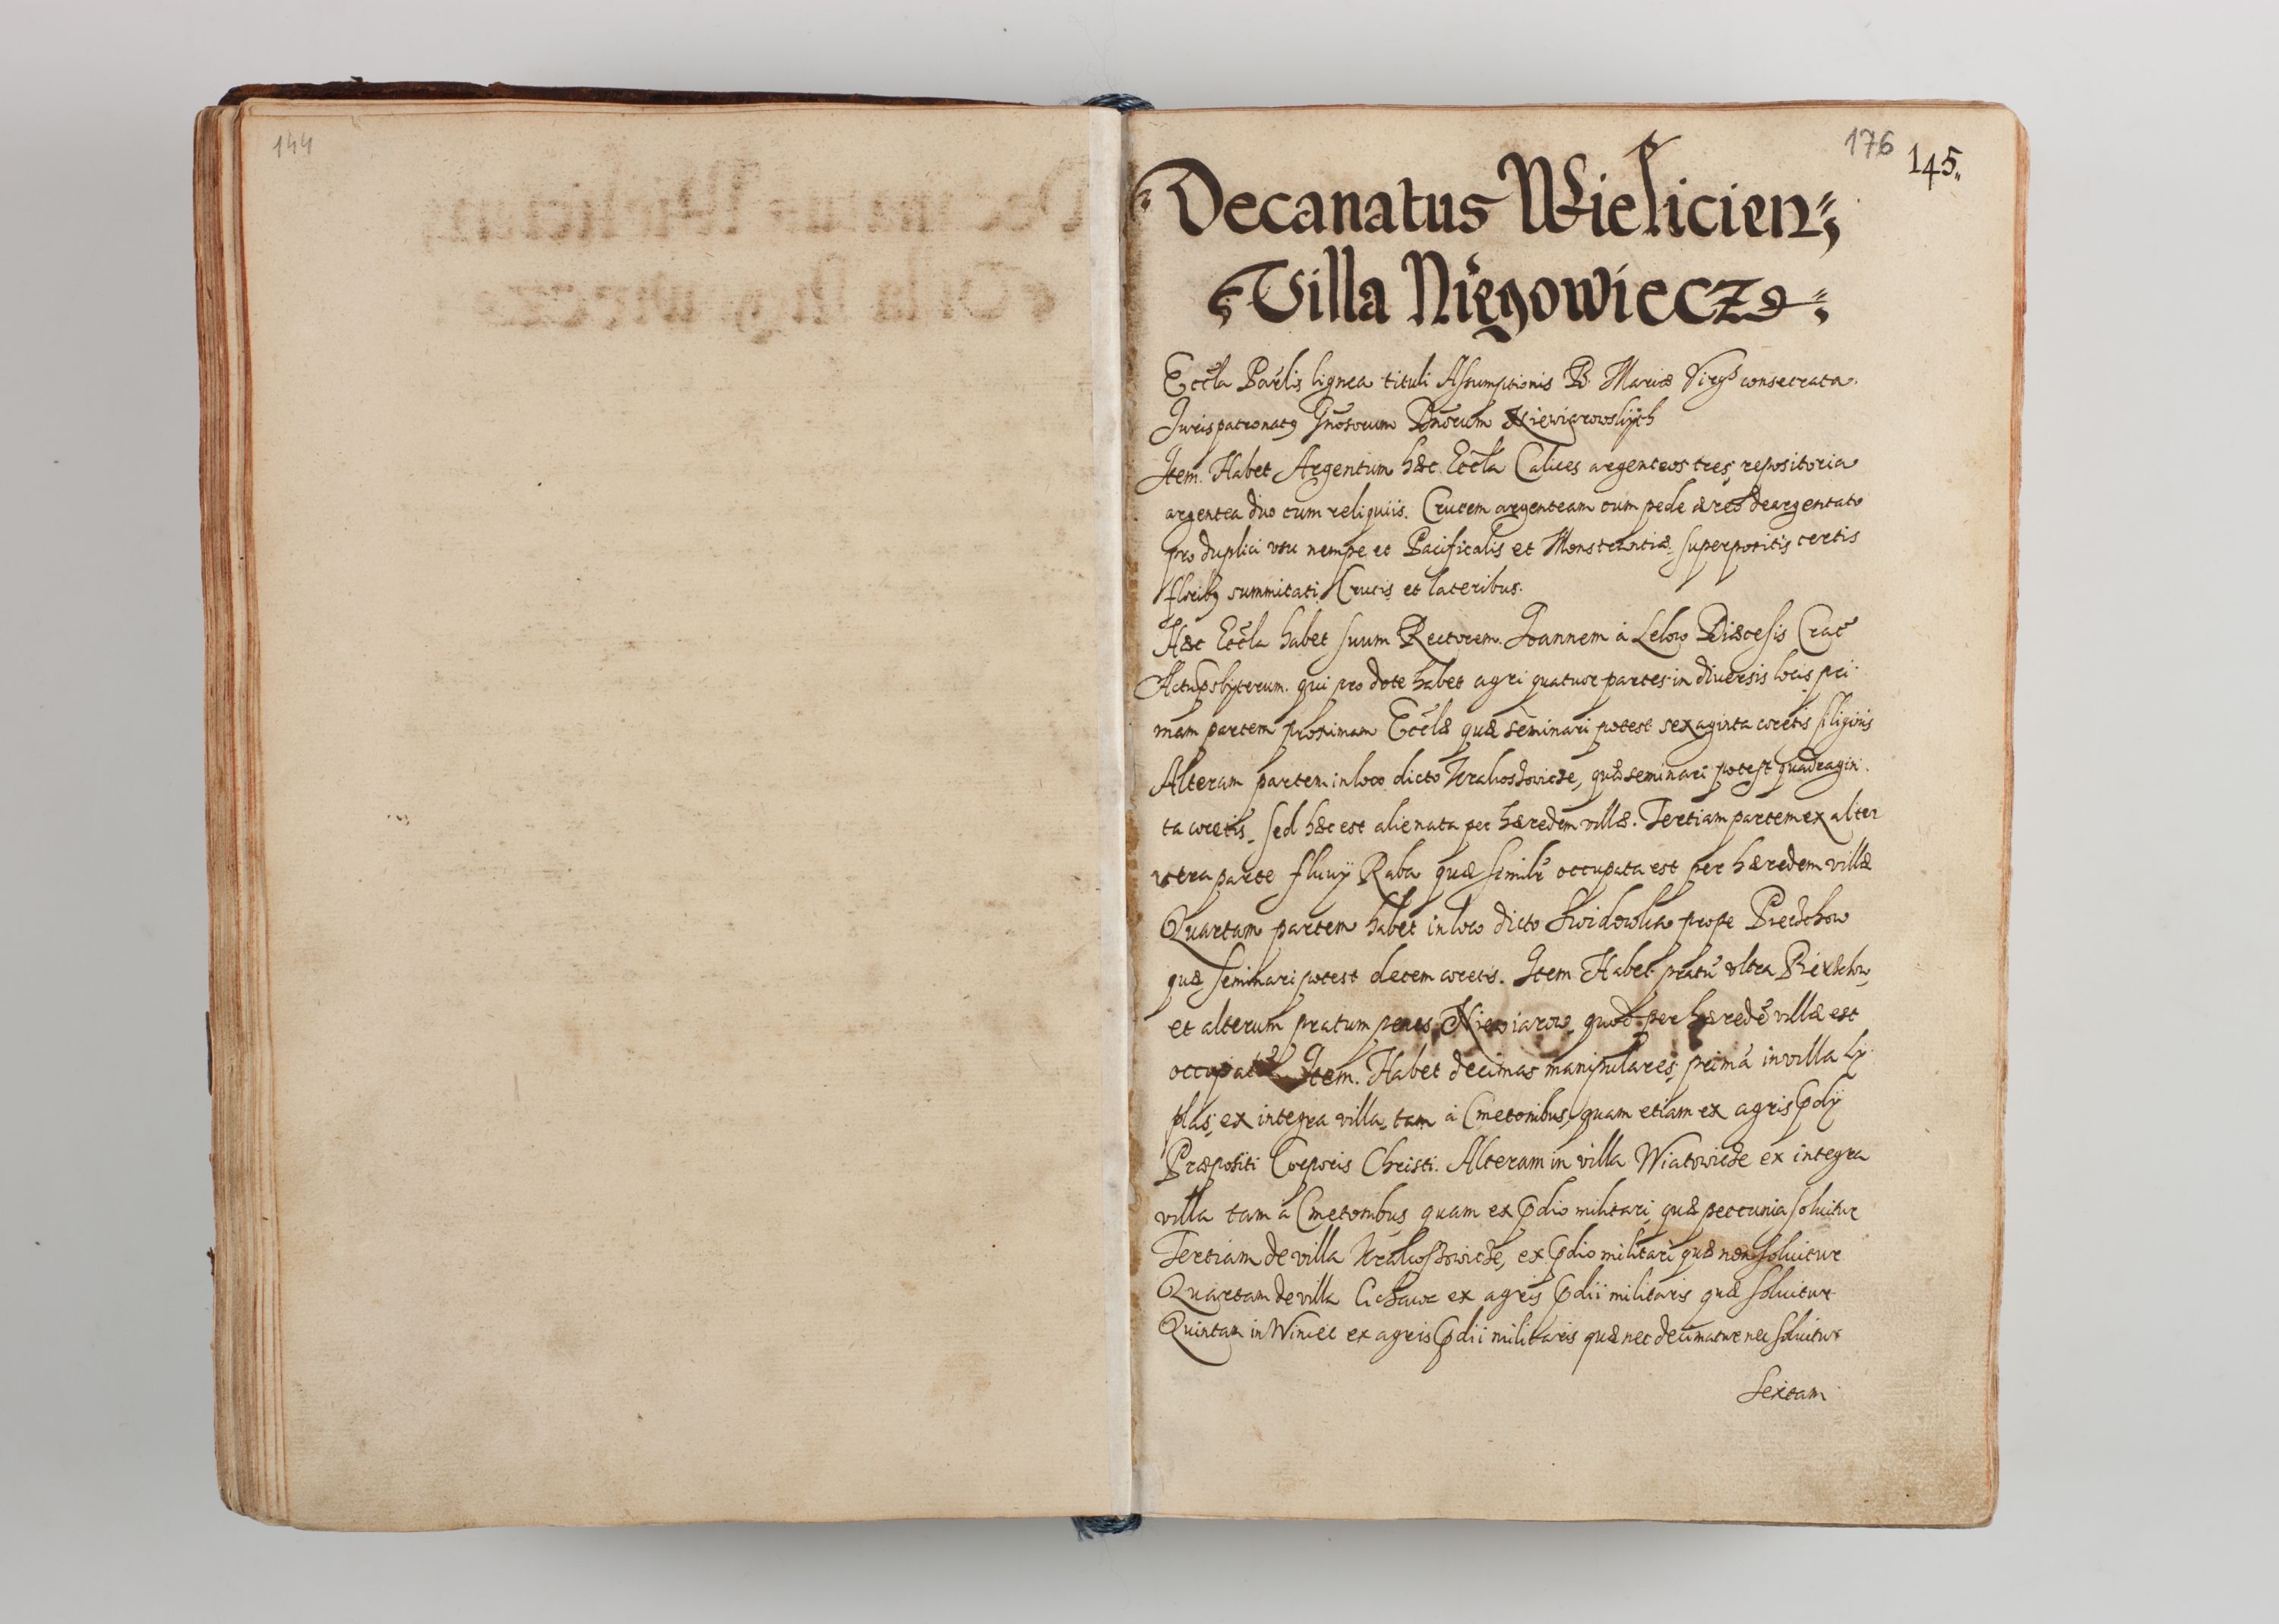 144
176
145
Decanatus Wielicien:
Villa Niegowiecze
Eccla Parlis lignea tituli Assumptionis B. Mariæ Virgs consecrata.
Jurispatronatus Gnosorum Dnorum Niewiarowskych
Item. Habet Argentum hæc Eccla Calices argenteos tres, repositoria
argentea duo cum reliquiis. Crucem argenteam cum pede æreo deargentato
pro duplici usu nempe et Pacificalis et Monstrantiæ, superpositis certis
floribus summitati Crucis et lateribus.
Hæc Eccla habet suum Rectorem. Joannem à Lelow Diæcesis Crac
Actupsbyterum. qui pro dote habet agri quatuor partes in diversis locis pri
mam partem proximam Ecclæ quæ seminari potest sexaginta coretis siliginis
Alteram partem in loco dicto quæ seminari potest quadragin
ta coretis, sed hæc est alienata per hæredem villæ. Tertiam partem ex alter
utra parte fluvy Raba quæ similr occupata est per hæredem villæ
Quartam partem habet in loco dicto prope
quæ seminari potest decem coretis. Item Habet pratu ultra
et alterum pratum penes Niewiarow, quod per hærede villæ est
occupatu Item. Habet decimas manipulares, prima in villa Li
plas, ex integra villa, tam à Cmetonibus, quam etiam ex agris pdy
Præpositi Corporis Christi. Alteram in villa Wiatowicze ex integra
villa tam à Cmetonibus quam ex pdio militari, quæ peccunia soluitur
Tertiam de villa ex pdio militari quæ non soluitur
Quartam de villa Cichawa ex agris pdii militaris quæ soluitur
Quintam in Winiec ex agris pdii militaris quæ nec decimatur nec soluitur
Sextam